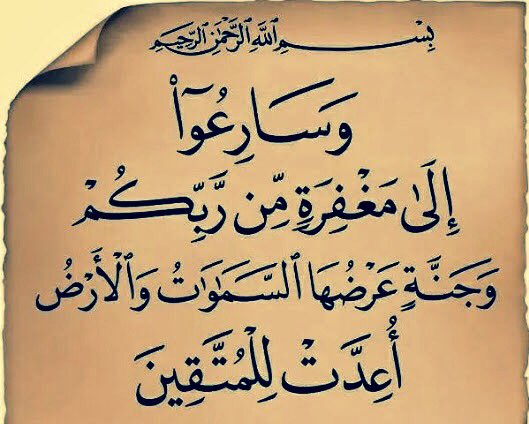 بِسْمِ ٱللَّهِ ٱلرَّحْمَٰنِ ٱلرَّحِيمِ
وَسَارِعُوٓا۟
إِلَىٰ مَغْفِرَةٍ مِّن رَّبِّكُمْ
وَجَنَّةٍ عَرْضُهَا ٱلسَّمَٰوَٰتُ وَٱلْأَرْضُ
أُعِدَّتْ لِلْمُتَّقِينَ